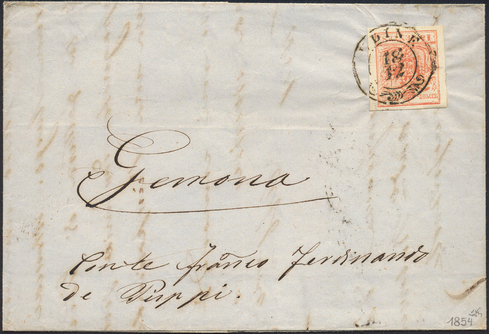 UDINE
18
12
Gemona
Conte franco Ferdinando
de Puppi.
1854